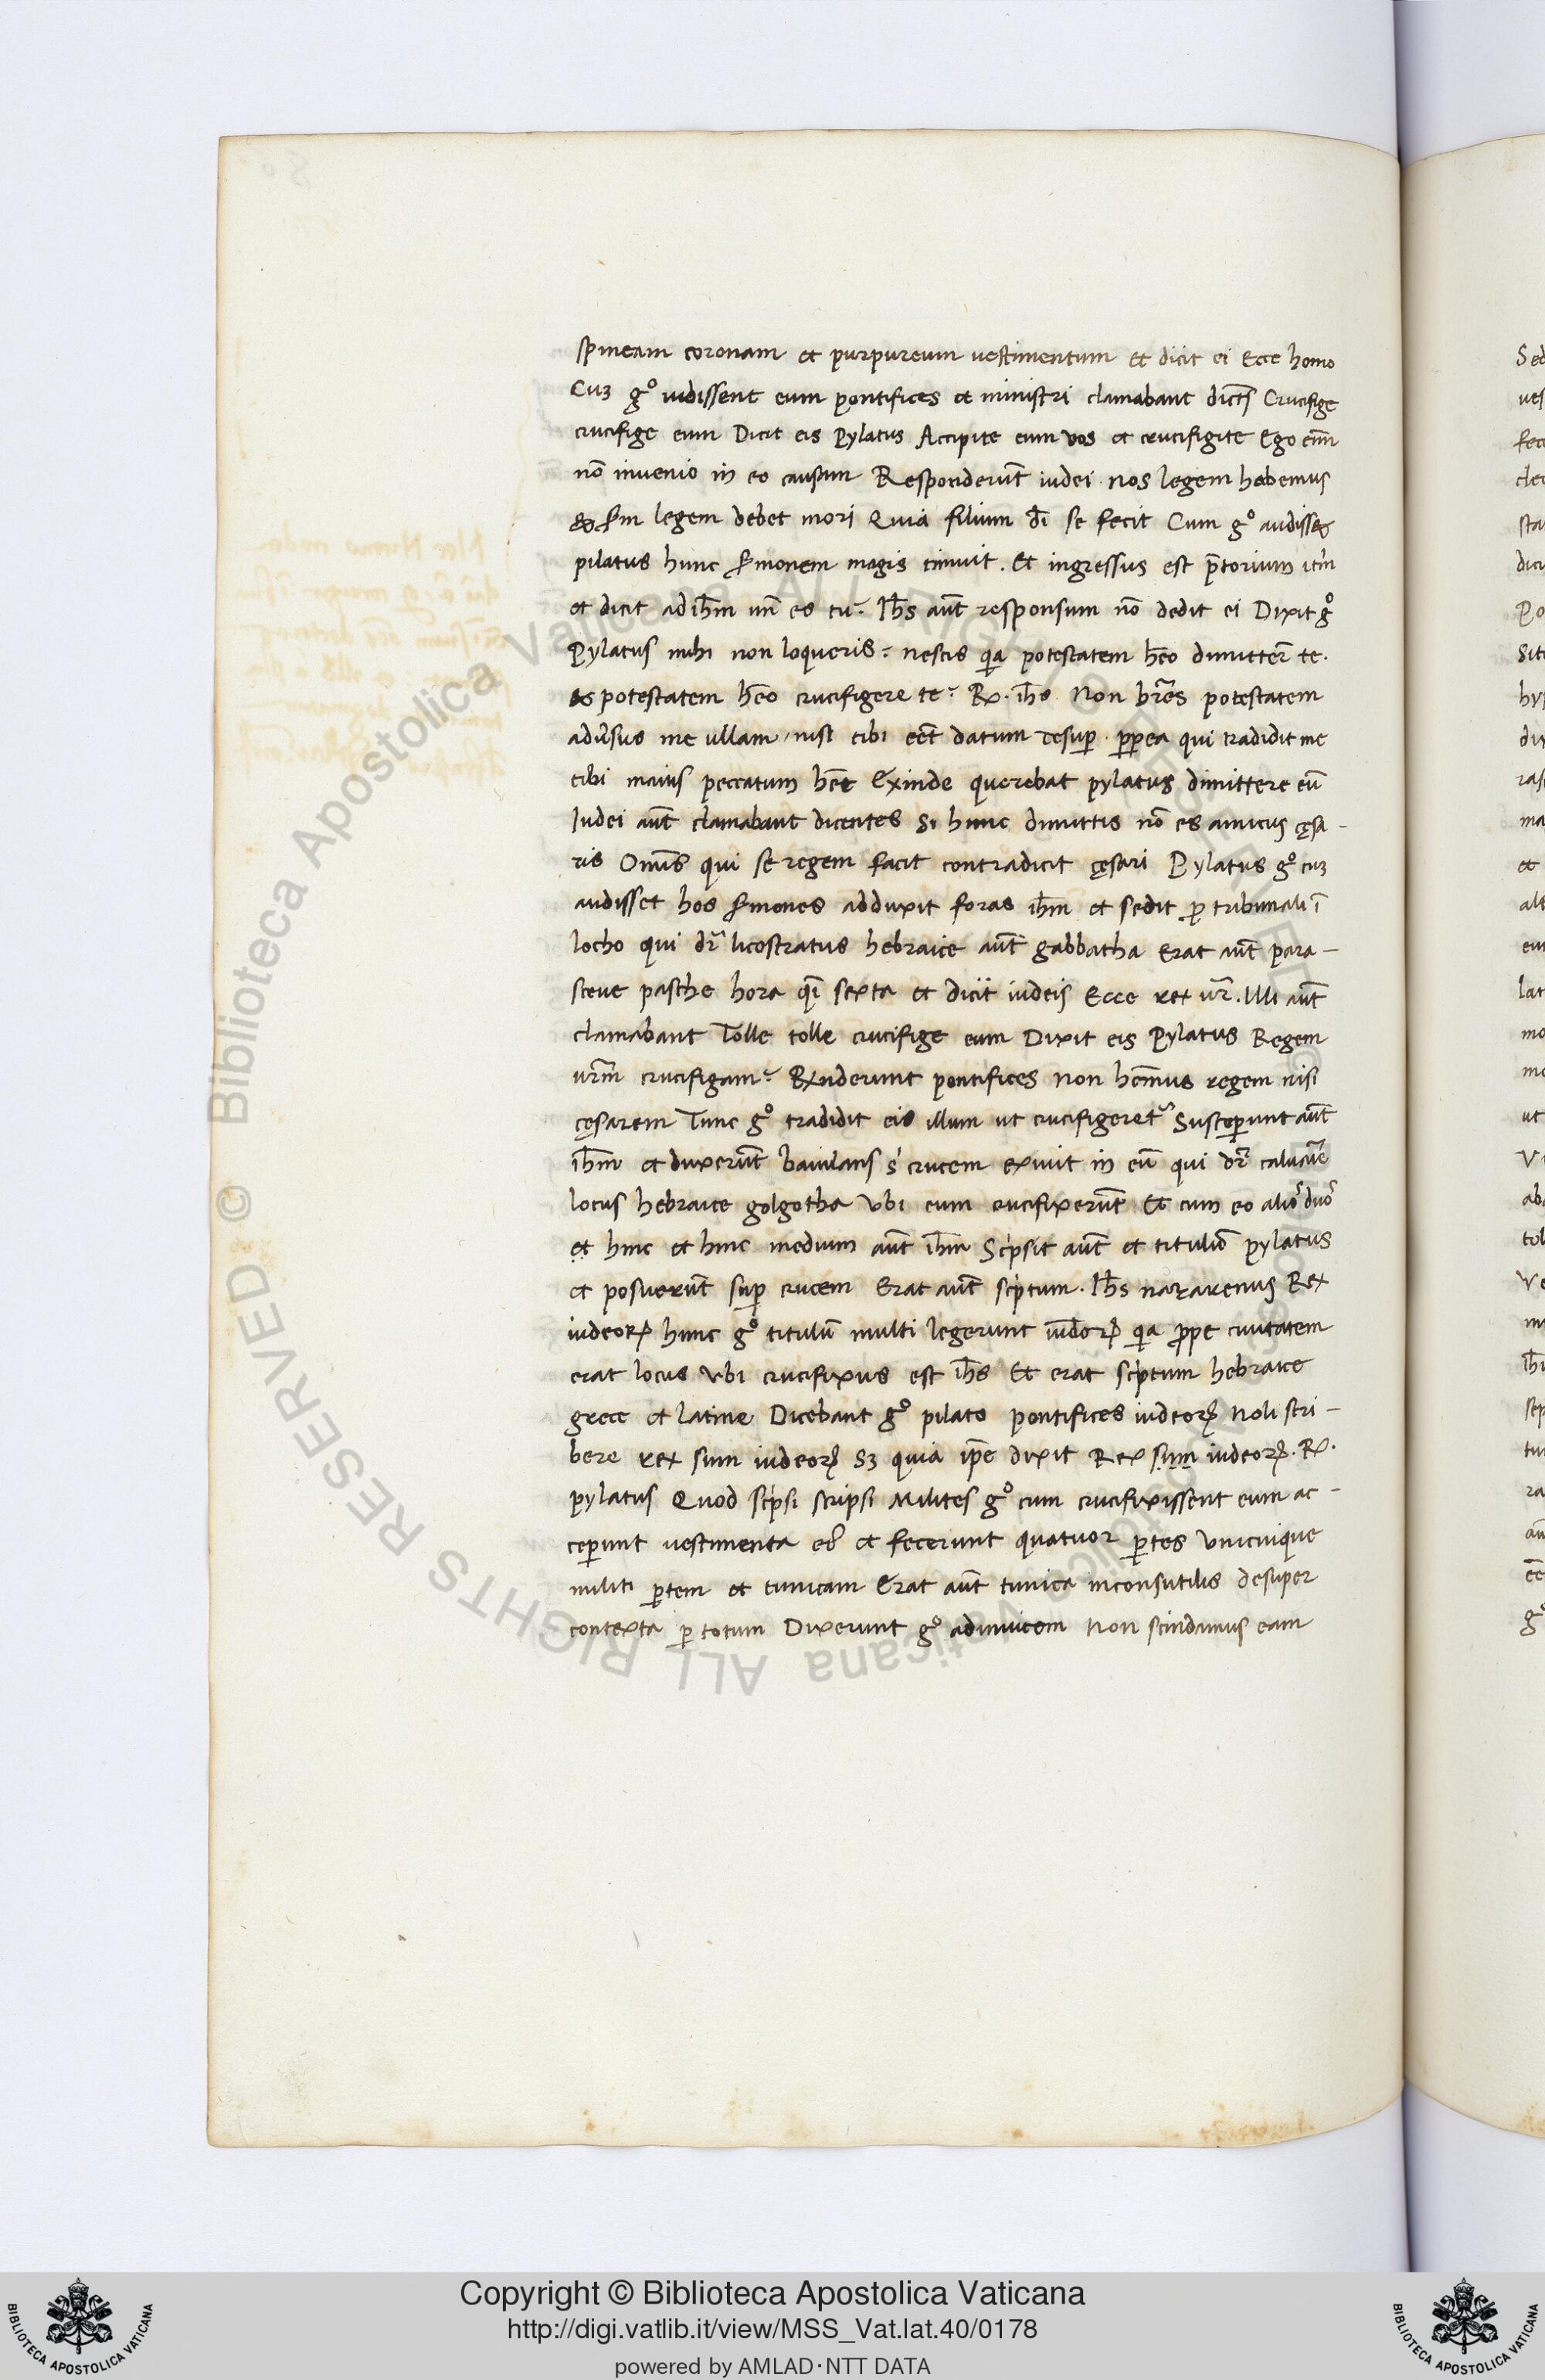 spineam coronam et purpureum vestimentum et dicit ei Ecce homo
Cuꝫ gͦ uidissent eum pontifices et ministri clamabant dicẽs Crucifige
crucifige eum Dicit eis Pylatus Accipite eum vos et crucifigite Ego eni᷒
nõ inuenio in eo causam Responderũt iudei nos legem habemus
et ẜm legem debet mori Quia filium dı̃ se fecit Cum gͦ audisset
pilatus hunc ẜmonem magis timuit. Et ingressus est p̃torium itm̃
et dicit ad ih̃m un̄ es tu? Ih̃s aũt responsum nõ dedit ei Dixit gͦ
Pylatus mihi non loqueris? nescis qia potestatem hẽo dimitter̃ te.
et potestatem hẽo crucifigere te? R. ih̃s Non hr̃es potestatem
adũsus me ullam nisi tibi eẽt datum desuꝑ ꝓpea qui tradidit me
tibi maius peccatum hẽt Exinde querebat pylatus dimittere eũ
Iudei aũt clamabant dicentes Si hunc dimittis nõ es amicus cęsa-
ris Omĩs qui se regem facit contradicit cęsari Pylatus gͦ cuꝫ
audisset hos ẜmones adduxit foras ih̃m et sedit ꝓ tribunali ĩ
locho qui dr̃ licostratus hebraice aũt gabbatha Erat aũt para-
sceue pasche hora qĩ sexta et dicit iudeis Ecce rex ur̃. Illi aũt
clamabant Tolle tolle crucifige eum Dixit eis Pylatus Regem
ur̃m crucifigam? Rx̃nderunt pontifices Non hem̃us regem nisi
cęsarem Tunc gͦ tradidit eis illum ut crucifigeret᷑ Susceꝑunt aũt
ih̃m et duxerũt baiulans s crucem exiuit in eũ qui dr̃ caluarie
locus hebraice golgotha Vbi eum crucifixerũt Et cum eo alios duos
et hinc et hinc medium aũt ih̃m Scͥpsit aũt et titulũ pylatus
et posuerũt suꝑ crucem Erat aũt scͥptum. Ih̃s nazarenus Rex
iudeoꝝ hunc gͦ titulũ multi legerunt iudeoꝝ qia ꝓpe ciuitatem
erat locus Vbi crucifixus est ih̃s Et erat scͥptum hebraice
grece et latine Dicebant gͦ pilato pontifices iudeoꝝ Noli scri-
bere rex sum iudeoꝝ Sꝫ quia ip̃e dixit Rex sum iudeoꝝ. R.
pylatus Quod scͥpsi scripsi Milites gͦ cum crucifixissent eum ac-
ceꝑunt vestimenta eiꝰ et fecerunt quatuor ꝑtes Vnicuique
militi ꝑtem et tunicam Erat aũt tunica inconsutilis desuper
contexta ꝑ totum Dixerunt gͦ adinuicem Non scindamus eam
Copyright © Biblioteca Apostolica Vaticana
http://digi.vatlib.it/view/MSS_Vat.lat.40/0178
powered by AMLAD·NTT DATA